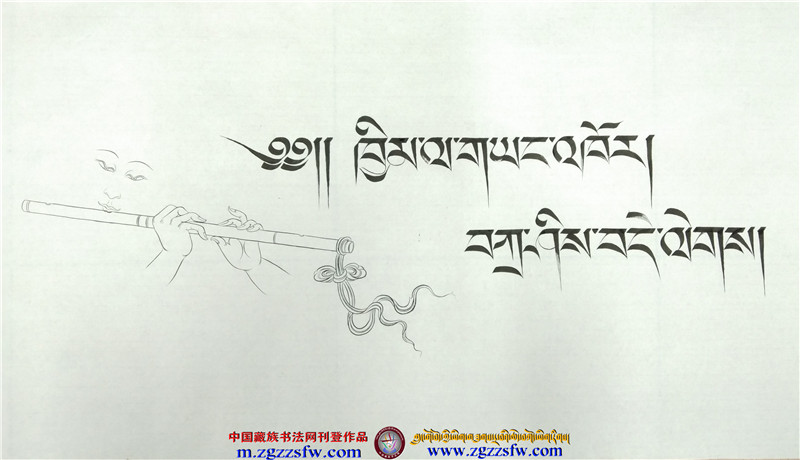 ༄༅།། ཁྱིམ་ལ་གཡང་འཁོར།
བཀྲ་ཤིས་བདེ་ལེགས།།
中国藏族书法网刊登作品
m.zgzzsfw.com
www.zgzzsfw.com